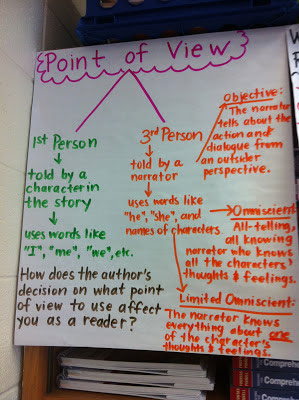 Point of View
1st Person
told by a
character in
the story
uses words like
"I", "me", "we", etc.
3rd Person
told by a
narrator
uses words like
"he", "she", and
names of characters
Objective:
The narrator
tells about the
action and
dialogue from
an outsider
perspective.
Omniscient:
All-telling,
all knowing
narrator who knows
all the characters'
thoughts & feelings.
Limited Omniscient:
The narrator knows
everything about one
of the character's
thoughts & feelings.
How does the author's
decision on what point
of view to use affect
you as a reader?
Comprehe
Comprehe